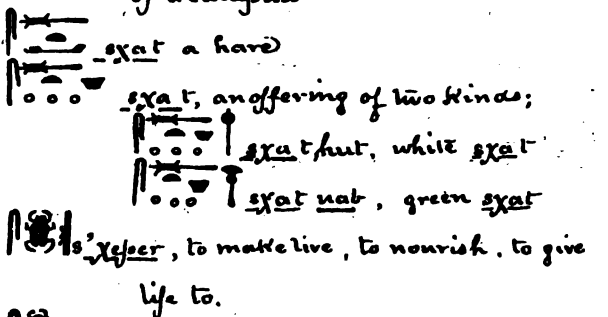 sχat a hare
sχat, an offering of two kinds;
sχat hut, white sχat
sχat nab, green sχat
s'χeper, to make live, to nourish, to give
life to.